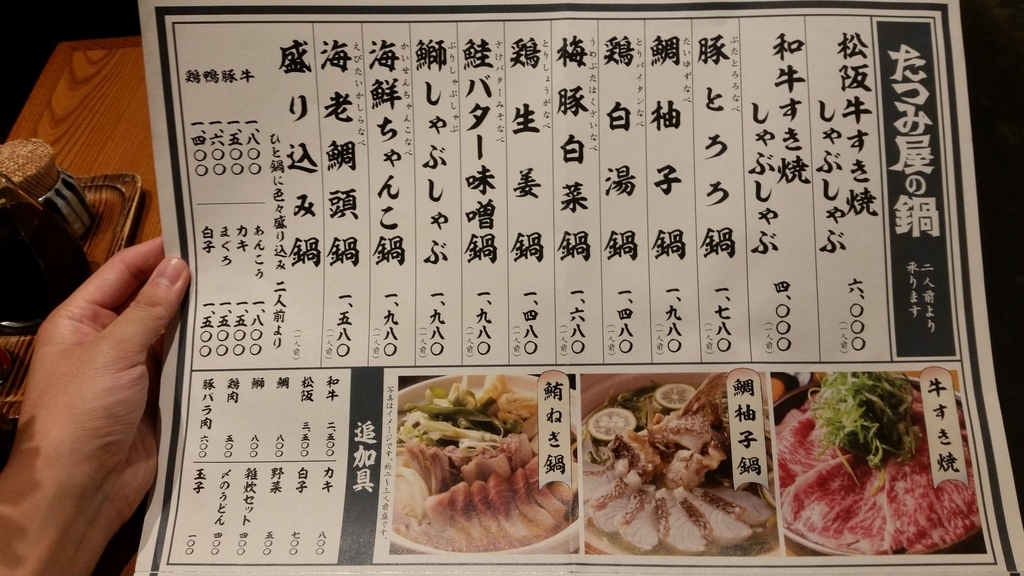 たつみ屋の鍋
二人前より
承ります
松阪牛すき焼
しゃぶしゃぶ
六、〇〇〇
(一人前)
和牛すき焼
しゃぶしゃぶ
四、〇〇〇
(一人前)
ぶたとろろなべ
豚とろろ鍋
一、七八〇
(一人前)
たいゆずなべ
鯛柚子鍋
一、九八〇
(一人前)
とりパイタンなべ
鶏白湯鍋
一、四八〇
(一人前)
うめぶたはくさいなべ
梅豚白菜鍋
一、六八〇
(一人前)
とりしょうがなべ
鶏生姜鍋
一、四八〇
(一人前)
さけバターみそなべ
鮭バター味噌鍋
一、九八〇
(一人前)
ぶりしゃぶしゃぶ
鰤しゃぶしゃぶ
一、九八〇
(一人前)
かいせんちゃんこなべ
海鮮ちゃんこ鍋
一、九八〇
(一人前)
えびたいかしらなべ
海老鯛頭鍋
一、五八〇
(一人前)
盛り込み鍋
ひと鍋に色々盛り込み 二人前より
(一人前)
牛 一、八〇〇
豚 一、五〇〇
鴨 一、六〇〇
鶏 一、四〇〇
あんこう 一、八〇〇
カキ 一、五〇〇
まぐろ 一、五〇〇
白子 一、五〇〇
牛すき焼
鯛柚子鍋
鮪ねぎ鍋
写真はイメージです。約二〜三人前盛です。
追加具
和牛 二、五〇〇
松阪 三、五〇〇
鯛 八〇〇
鰤 八〇〇
鶏肉 五〇〇
豚バラ肉 六〇〇
カキ 八〇〇
白子 七〇〇
野菜 五〇〇
雑炊セット 四〇〇
〆のうどん 四〇〇
玉子 一〇〇